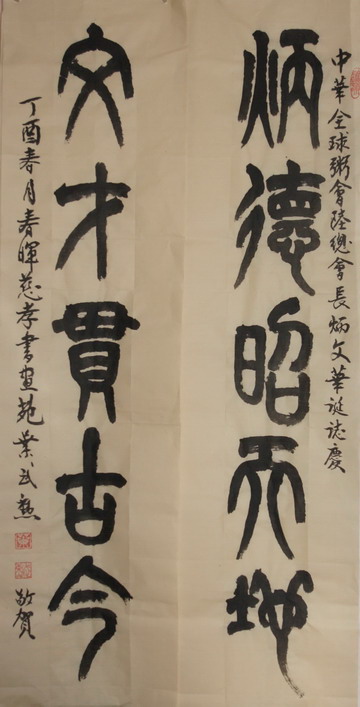 中華全球粥會陸總會長炳文華誕誌慶
炳德昭天地
文才貫古今
丁酉春月春暉慈孝書畫苑
敬賀